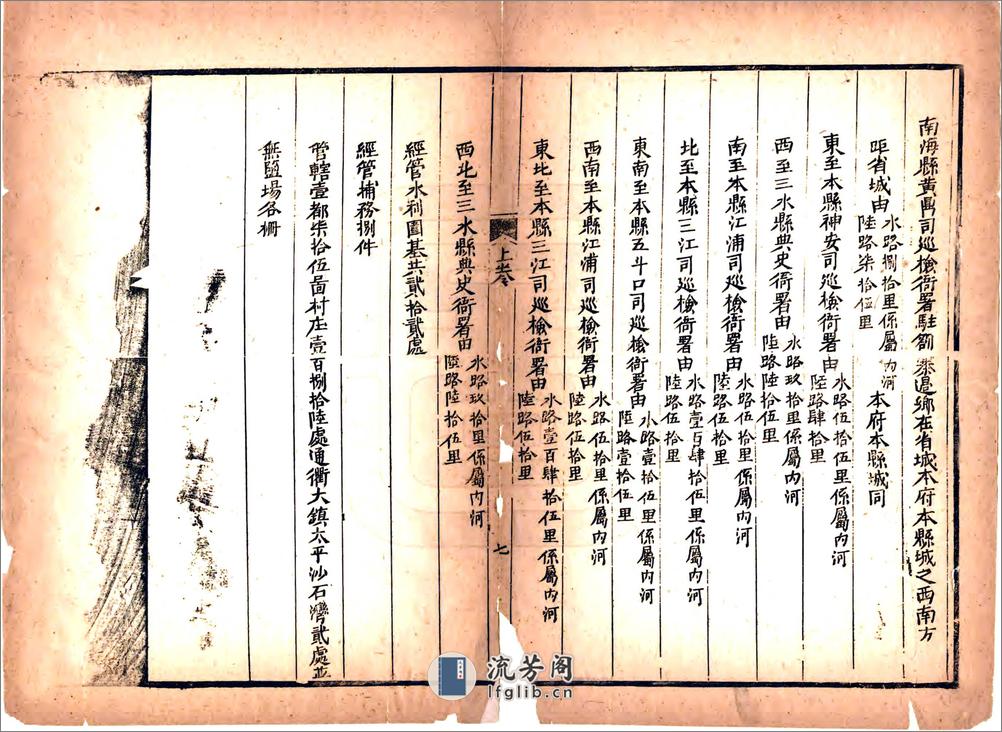 南海縣黃鼎司巡檢衙署駐劄 邊鄉在省城本府本縣城之西南方
距省城由 水路捌拾里係屬內河 陸路柒拾伍里 本府本縣城同
東至本縣神安司巡檢衙署由 水路伍拾伍里係屬內河 陸路肆拾里
西至三水縣典史衙署由 水路玖拾里係屬內河 陸路陸拾伍里
南至本縣江浦司巡檢衙署由 水路伍拾里係屬內河 陸路伍拾里
北至本縣三江司巡檢衙署由 水路壹百肆拾伍里係屬內河 陸路伍拾里
東南至本縣五斗口司巡檢衙署由 水路壹拾伍里係屬內河 陸路壹拾伍里
西南至本縣江浦司巡檢衙署由 水路伍拾里係屬內河 陸路伍拾里
東北至本縣三江司巡檢衙署由 水路壹百肆拾伍里係屬內河 陸路伍拾里
上卷
七
西北至三水縣典史衙署由 水路玖拾里係屬內河 陸路陸拾伍里
經管水利圍基共貳拾貳處
經管捕務捌件
管轄壹都柒拾伍啚村庄壹百捌拾陸處通衢大鎮太平沙石灣貳處並
無鹽場各柵
流芳阁
lfglib.cn